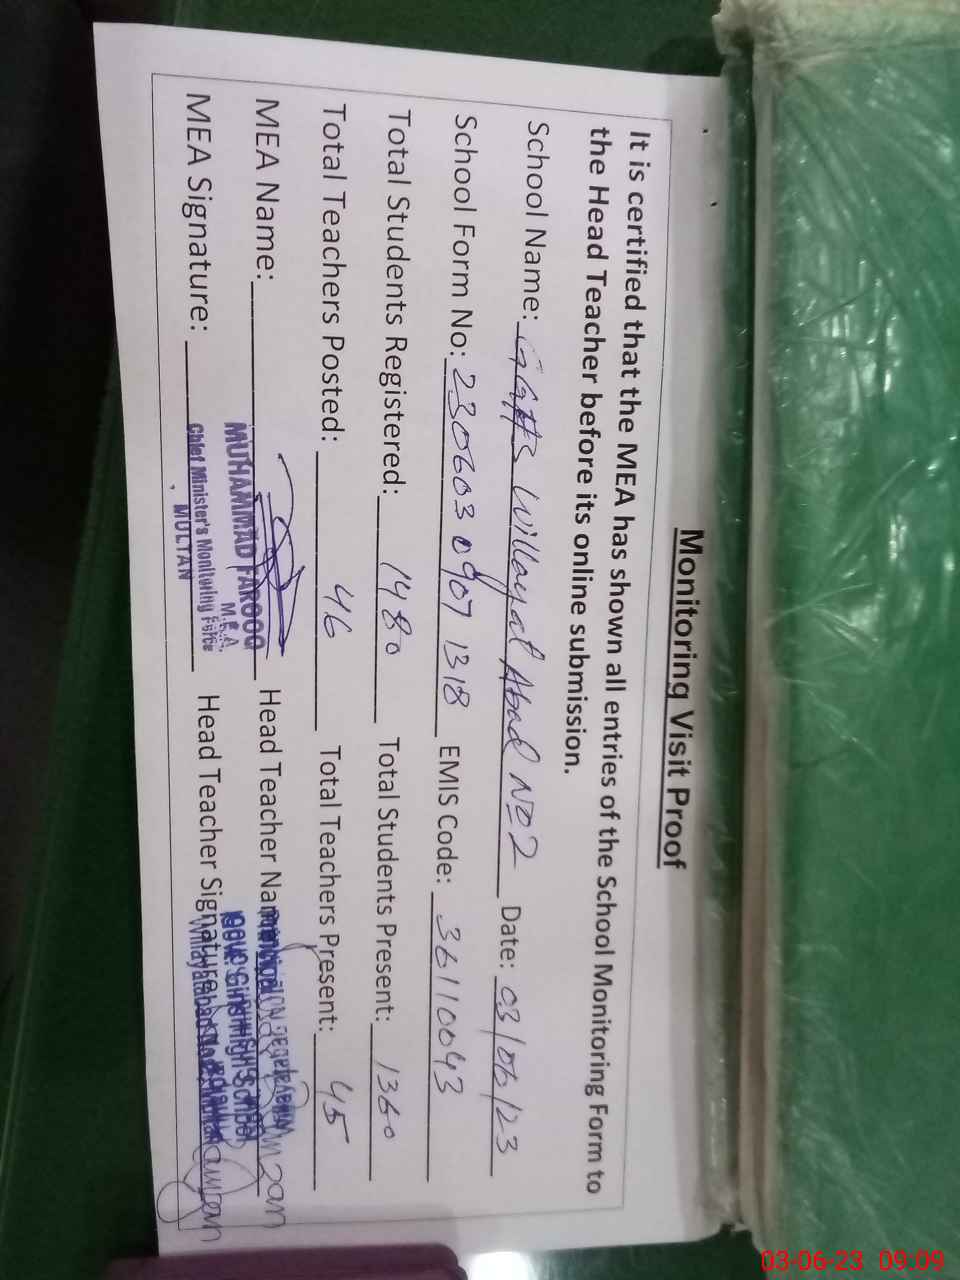 Monitoring Visit Proof
It is certified that the MEA has shown all entries of the School Monitoring Form to
the Head Teacher before its online submission.
School Name: GGHS Willayat Abad NO2 Date: 03/06/23
School Form No: 230603 0907 1318 EMIS Code: 36110043
Total Students Registered: 1480 Total Students Present: 1360
Total Teachers Posted: 46 Total Teachers Present: 45
MEA Name: Head Teacher Name
MUHAMMAD FAROOQ
M.E.A.
MEA Signature: Head Teacher Signature
Chief Minister's Monitoring Force
MULTAN
Govt. Girls High School
03-06-23 09:09